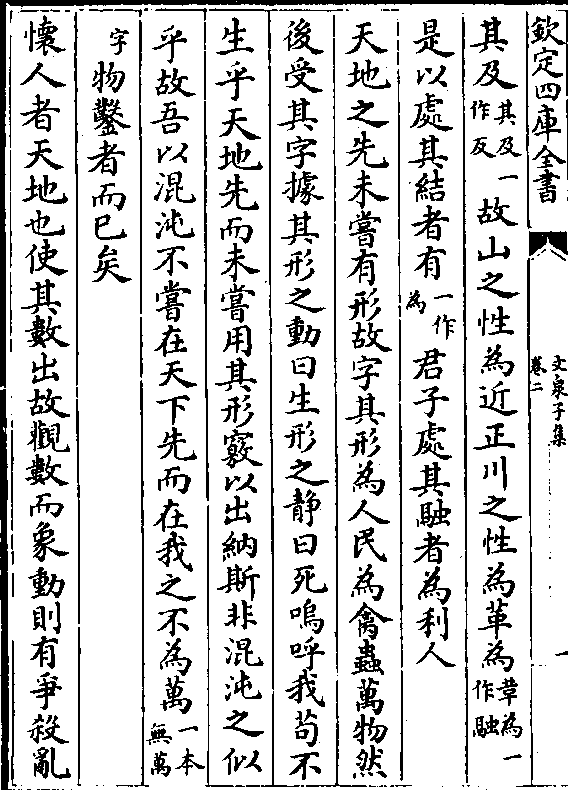 欽定四庫全書
文泉子集
卷二
一
其及其及一作反故山之性為近正川之性為革為革為一作融
是以處其結者有一作為君子處其融者為利人
天地之先未嘗有形故字其形為人民為禽蟲萬物然
後受其字據其形之動曰生形之静曰死嗚呼我苟不
生乎天地先而未嘗用其形竅以出納斯非混沌之似
乎故吾以混沌不嘗在天下先而在我之不為萬一本無萬
字物鑿者而已矣
懷人者天地也使其數出故觀數而象動則有爭殺亂